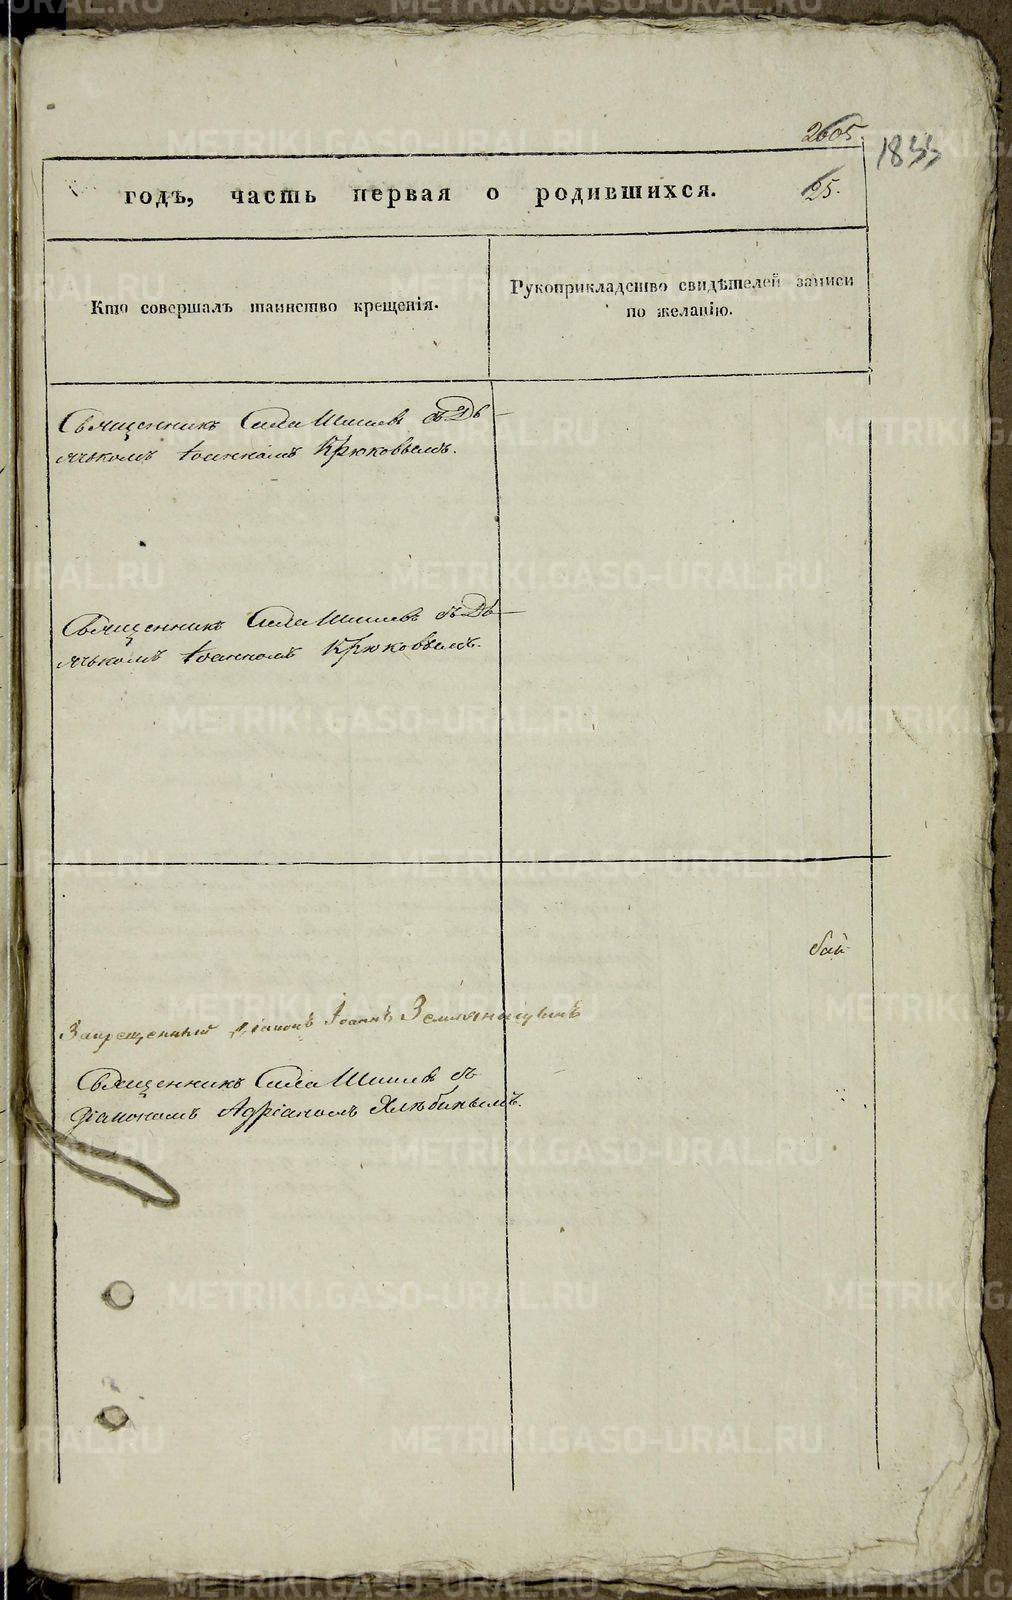 2605
1833
годъ, часть первая о родившихся.
25.
Кто совершалъ таинство крещенія.
Рукоприкладство свидѣтелей записи
по желанію.
Священникъ Сила Шишевъ съ Дь-
ячькомъ Іоанномъ Крюковымъ.
Священникъ Сила Шишевъ съ Дь-
ячькомъ Іоанномъ Крюковымъ.
Запрещенный діаконъ Іоаннъ Земляницынъ
Священникъ Сила Шишевъ съ
діакономъ Адріаномъ Хлѣбинымъ.
METRIKI.GASO-URAL.RU